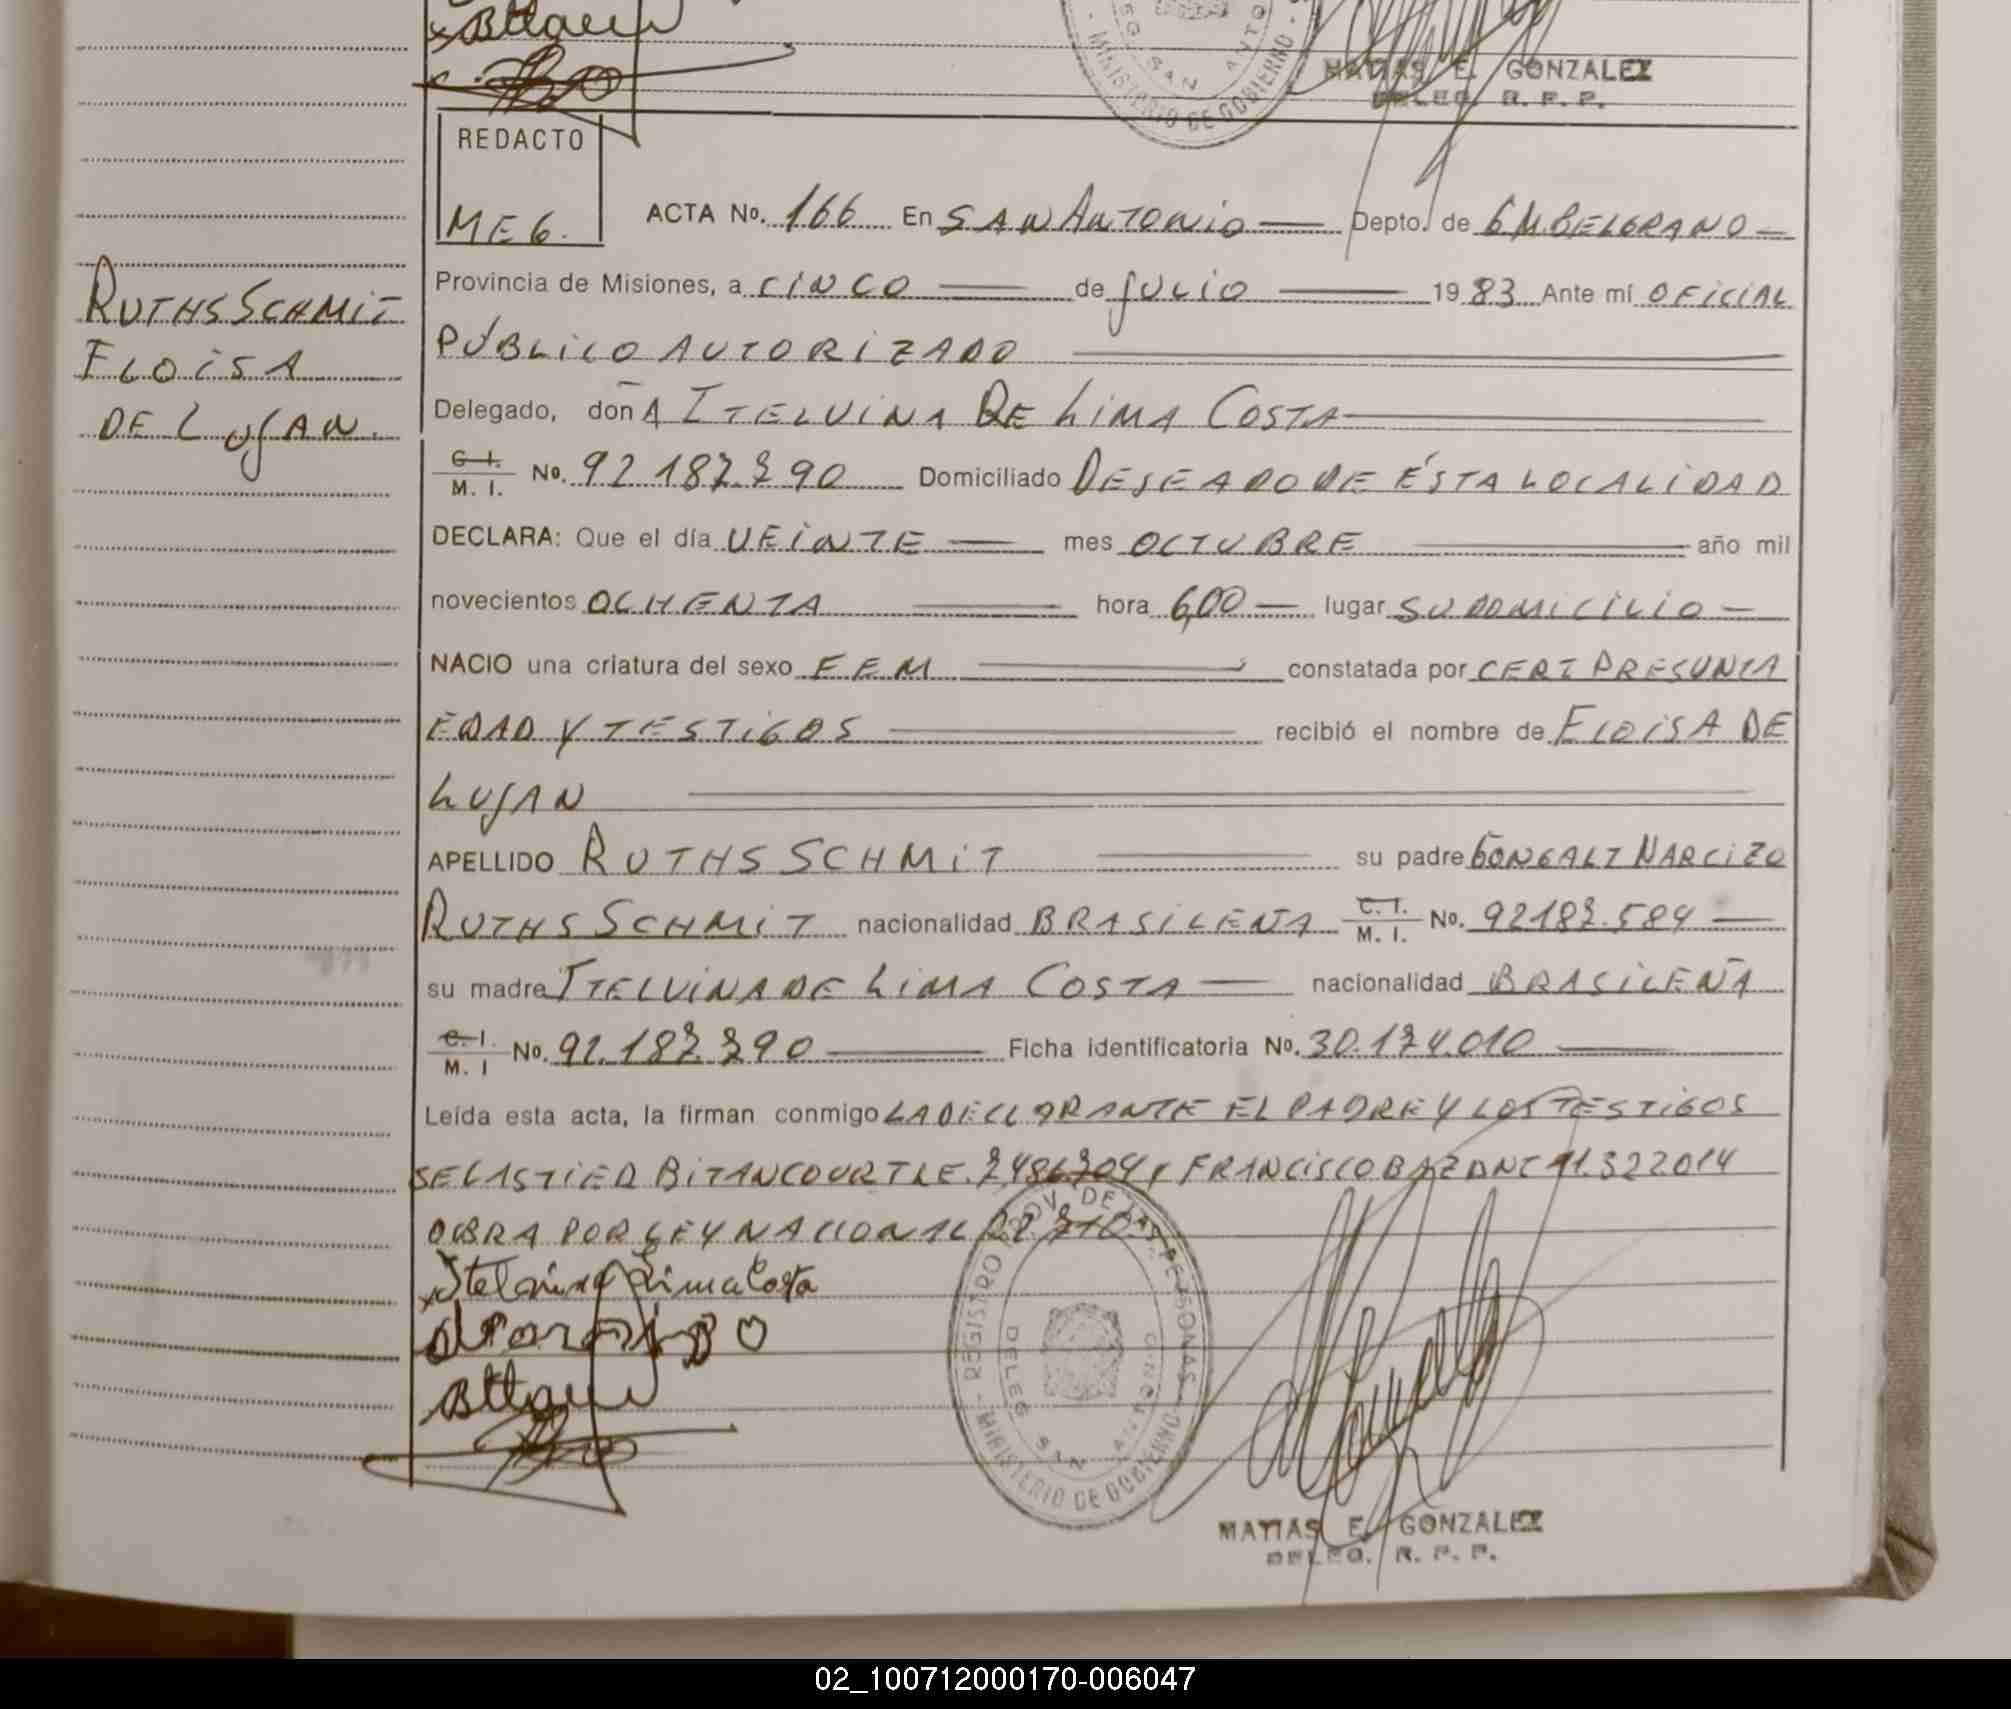 MATIAS E. GONZALEZ
DELEG. R. P. P.
REDACTO
MEG.
ACTA No. 166 En SAN ANTONIO Depto. de GM BELGRANO
RUTHS SCHMIT
ELOISA
DE LUJAN.
Provincia de Misiones, a CINCO de JULIO 1983 Ante mí OFICIAL
PÚBLICO AUTORIZADO
Delegado, don A ITELVINA DE LIMA COSTA
C. I. M. I. No. 92.187.790 Domiciliado DESEADO DE ÉSTA LOCALIDAD
DECLARA: Que el día VEINTE mes OCTUBRE año mil
novecientos OCHENTA hora 6,00 lugar SU DOMICILIO
NACIO una criatura del sexo FEM constatada por CERT PRESUNTA
EDAD Y TESTIGOS recibió el nombre de ELOISA DE
LUJAN
APELLIDO RUTHS SCHMIT su padre GONSALT NARCIZO
RUTHS SCHMIT nacionalidad BRASILEÑA C. I. M. I. No. 92187.584
su madre ITELVINA DE LIMA COSTA nacionalidad BRASILEÑA
C. I. M. I No. 92.187.790 Ficha identificatoria No. 30.174.010
Leída esta acta, la firman conmigo LA DECLARANTE EL PADRE Y LOS TESTIGOS
SELASTIED BITANCOURT LE. 7486704, FRANCISCO BAZAN 11.322014
OBRA POR LEY NACIONAL 22.710.
Itelvina Lima Costa
REGISTRO PROV. DE LAS PERSONAS
DELEG. SAN ANTONIO
MINISTERIO DE GOBIERNO
MATIAS E. GONZALEZ
DELEG. R. P. P.
02_100712000170-006047